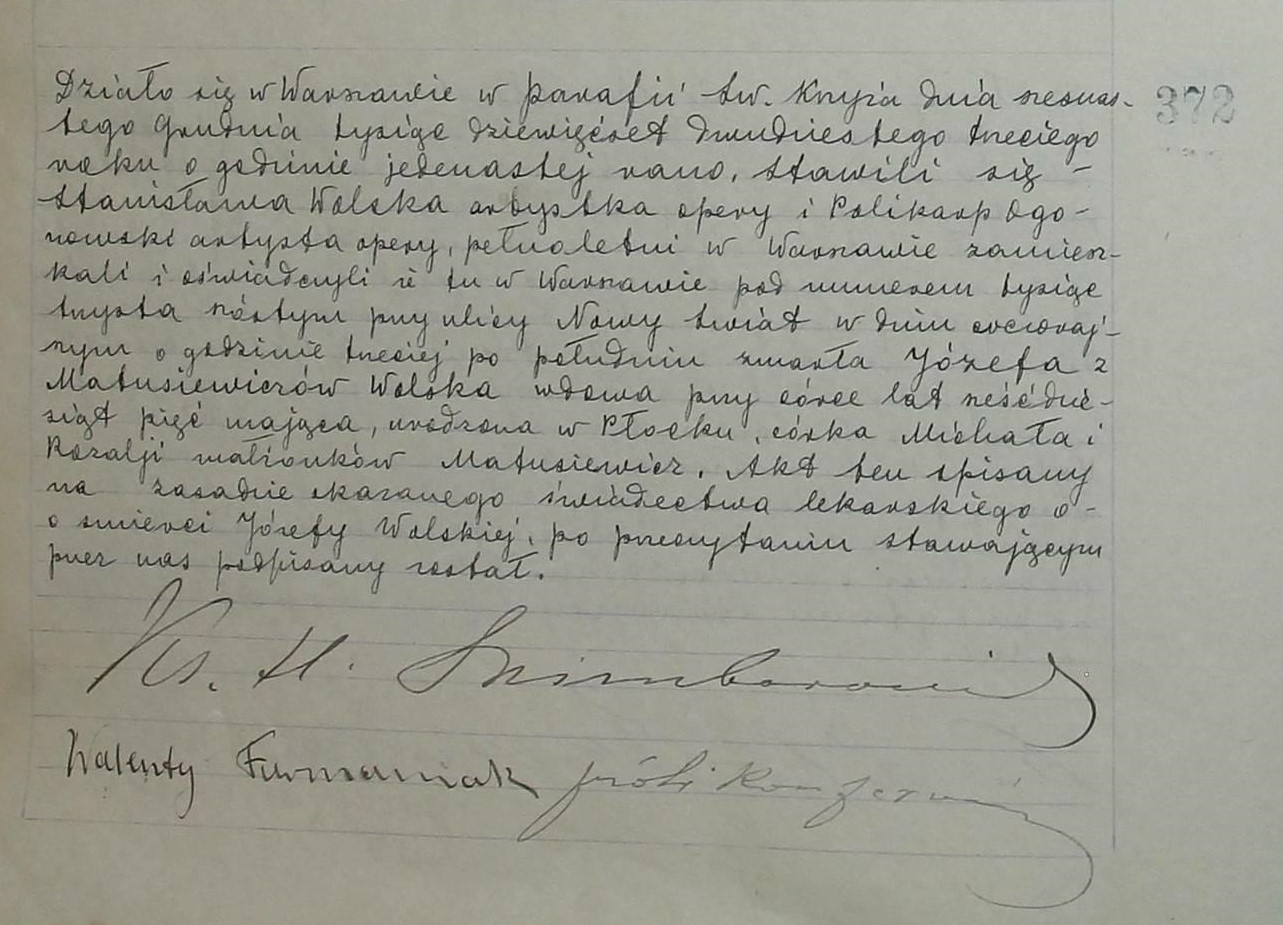 Działo się w Warszawie w parafii św. Krzyża dnia szesnas-
tego Grudnia tysiąc dziewięćset dwudziestego trzeciego
roku o godzinie jedenastej rano, stawili się -
Stanisława Wolska artystka opery i Polikarp Ogo-
nowski artysta opery, pełnoletni w Warszawie zamiesz-
kali i oświadczyli iż tu w Warszawie pod numerem tysiąc
trzysta szóstym przy ulicy Nowy Świat w dniu wczoraj-
szym o godzinie trzeciej po południu zmarła Józefa z
Matusiewiczów Wolska wdowa przy córce lat sześćdzie-
siąt pięć mająca, urodzona w Płocku, córka Michała i
Rozalji małżonków Matusiewicz. Akt ten spisany
na zasadzie okazanego świadectwa lekarskiego o-
o śmierci Józefy Wolskiej, po przeczytaniu stawającym
przez nas podpisany został.
Ks. H.
Walenty Furmaniak
372